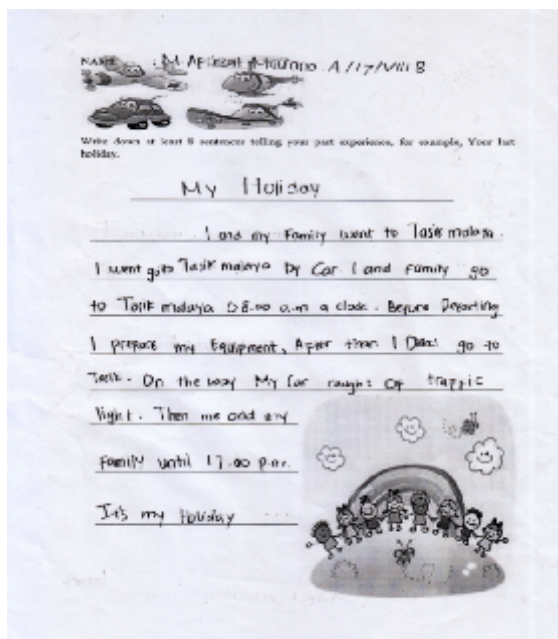 NAME : M. A / 17 / VIII B
Write down at least 8 sentences telling your past experience, for example, Your last
holiday.
My Holiday
I and my Family went to Tasik malaya.
I went goto Tasik malaya by Car. I and Family go
to Tasik malaya 08.00 a.m a clock. Before Departing
I prepare my Equipment, After than I go to
Tasik. On the way My Car caught of trappic
light. Then me and my
Family until 17.00 p.m.
It's my Holiday ...